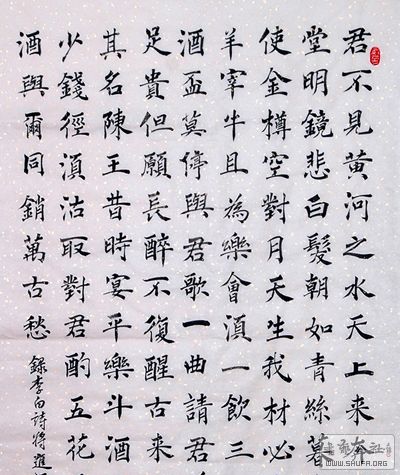 君不見黄河之水天上来
堂明鏡悲白髮朝如青絲暮
使金樽空對月天生我材必
羊宰牛且為樂會湏一飲三
酒盃莫停與君歌一曲請君
足貴但願長醉不復醒古来
其名陳王昔時宴平樂斗酒
少錢徑湏沽取對君酌五花
酒與爾同銷萬古愁
錄李白詩將進
WWW.SHUFA.ORG